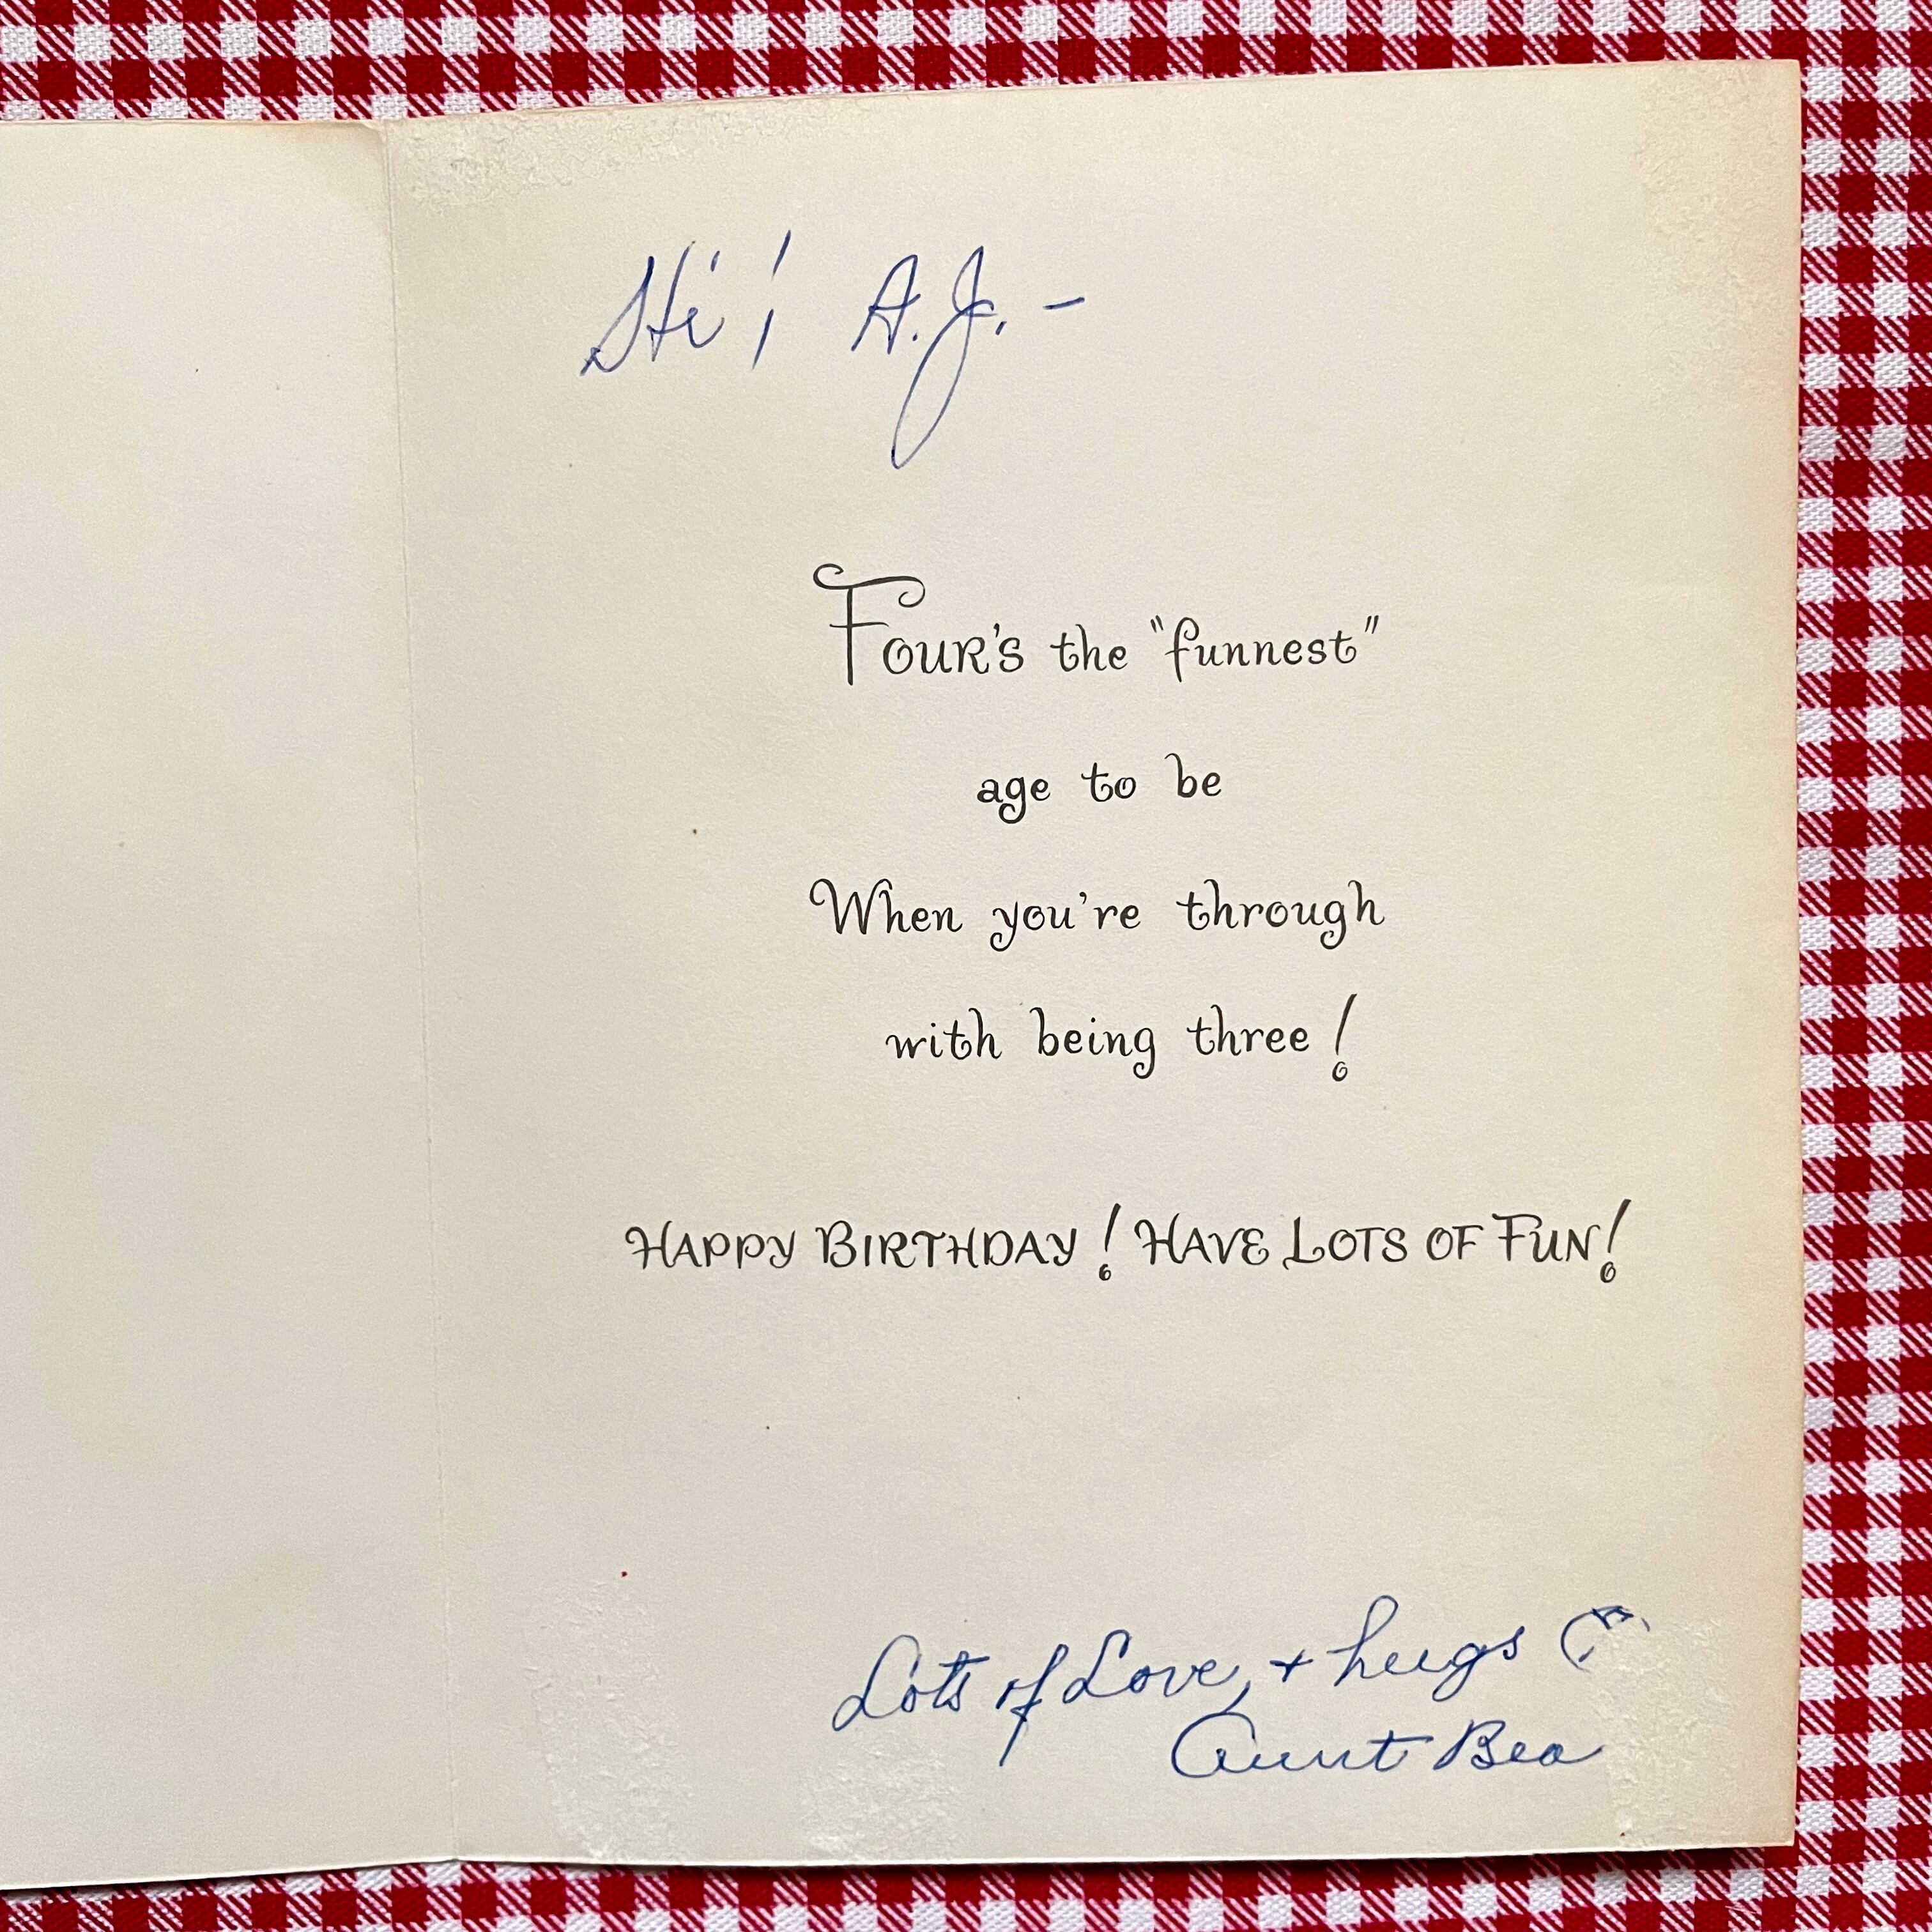 Hi! A.J. –
Four's the "funnest"
age to be
When you're through
with being three!
Happy Birthday! Have Lots of Fun!
Lots of Love, + hugs
Aunt Bea